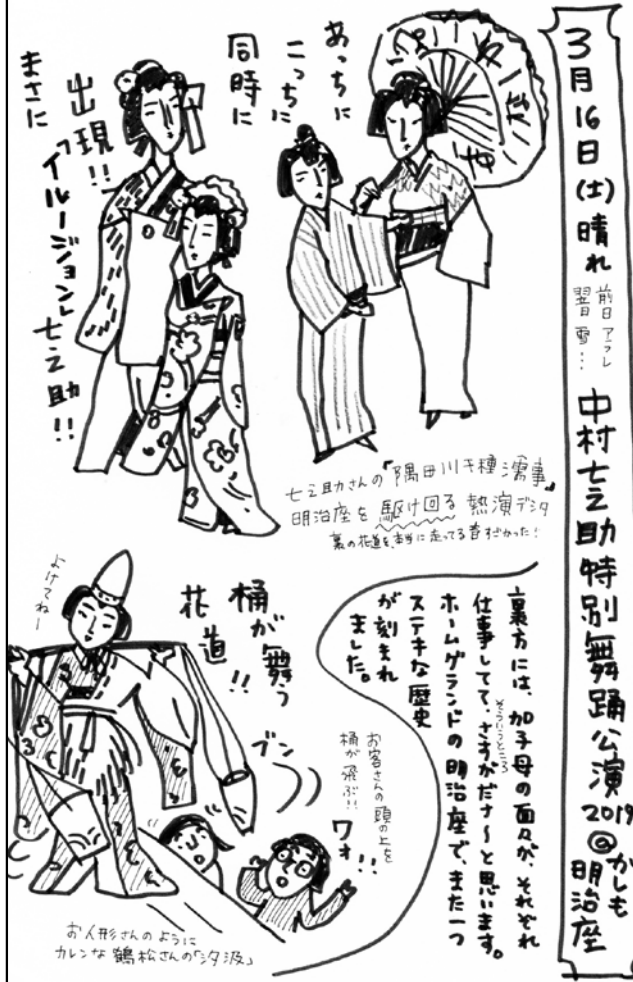 3月16日(土)晴れ
前日アラレ
翌 雪…
中村七之助特別舞踊公演
2019
@かしも
明治座
あっちに
こっちに
同時に
出現!!
まさに
「イルージョン」七之助!!
七之助さんの『隅田川千種濡事』
明治座を駆け回る 熱演デシタ
裏の花道を、本当に走ってる音すごかった!
裏方には、加子母の面々が、それぞれ
仕事してて、さすがだナ～と思います。
そういうところ
ホームグランドの明治座で、また一つ
ステキな歴史
が刻まれ
ました。
桶が舞う
花道!!
よけてねー
ブン
お客さんの頭の上を
桶が飛ぶ!!
ワォ!!
お人形さんのように
カレンな鶴松さんの「汐汲」